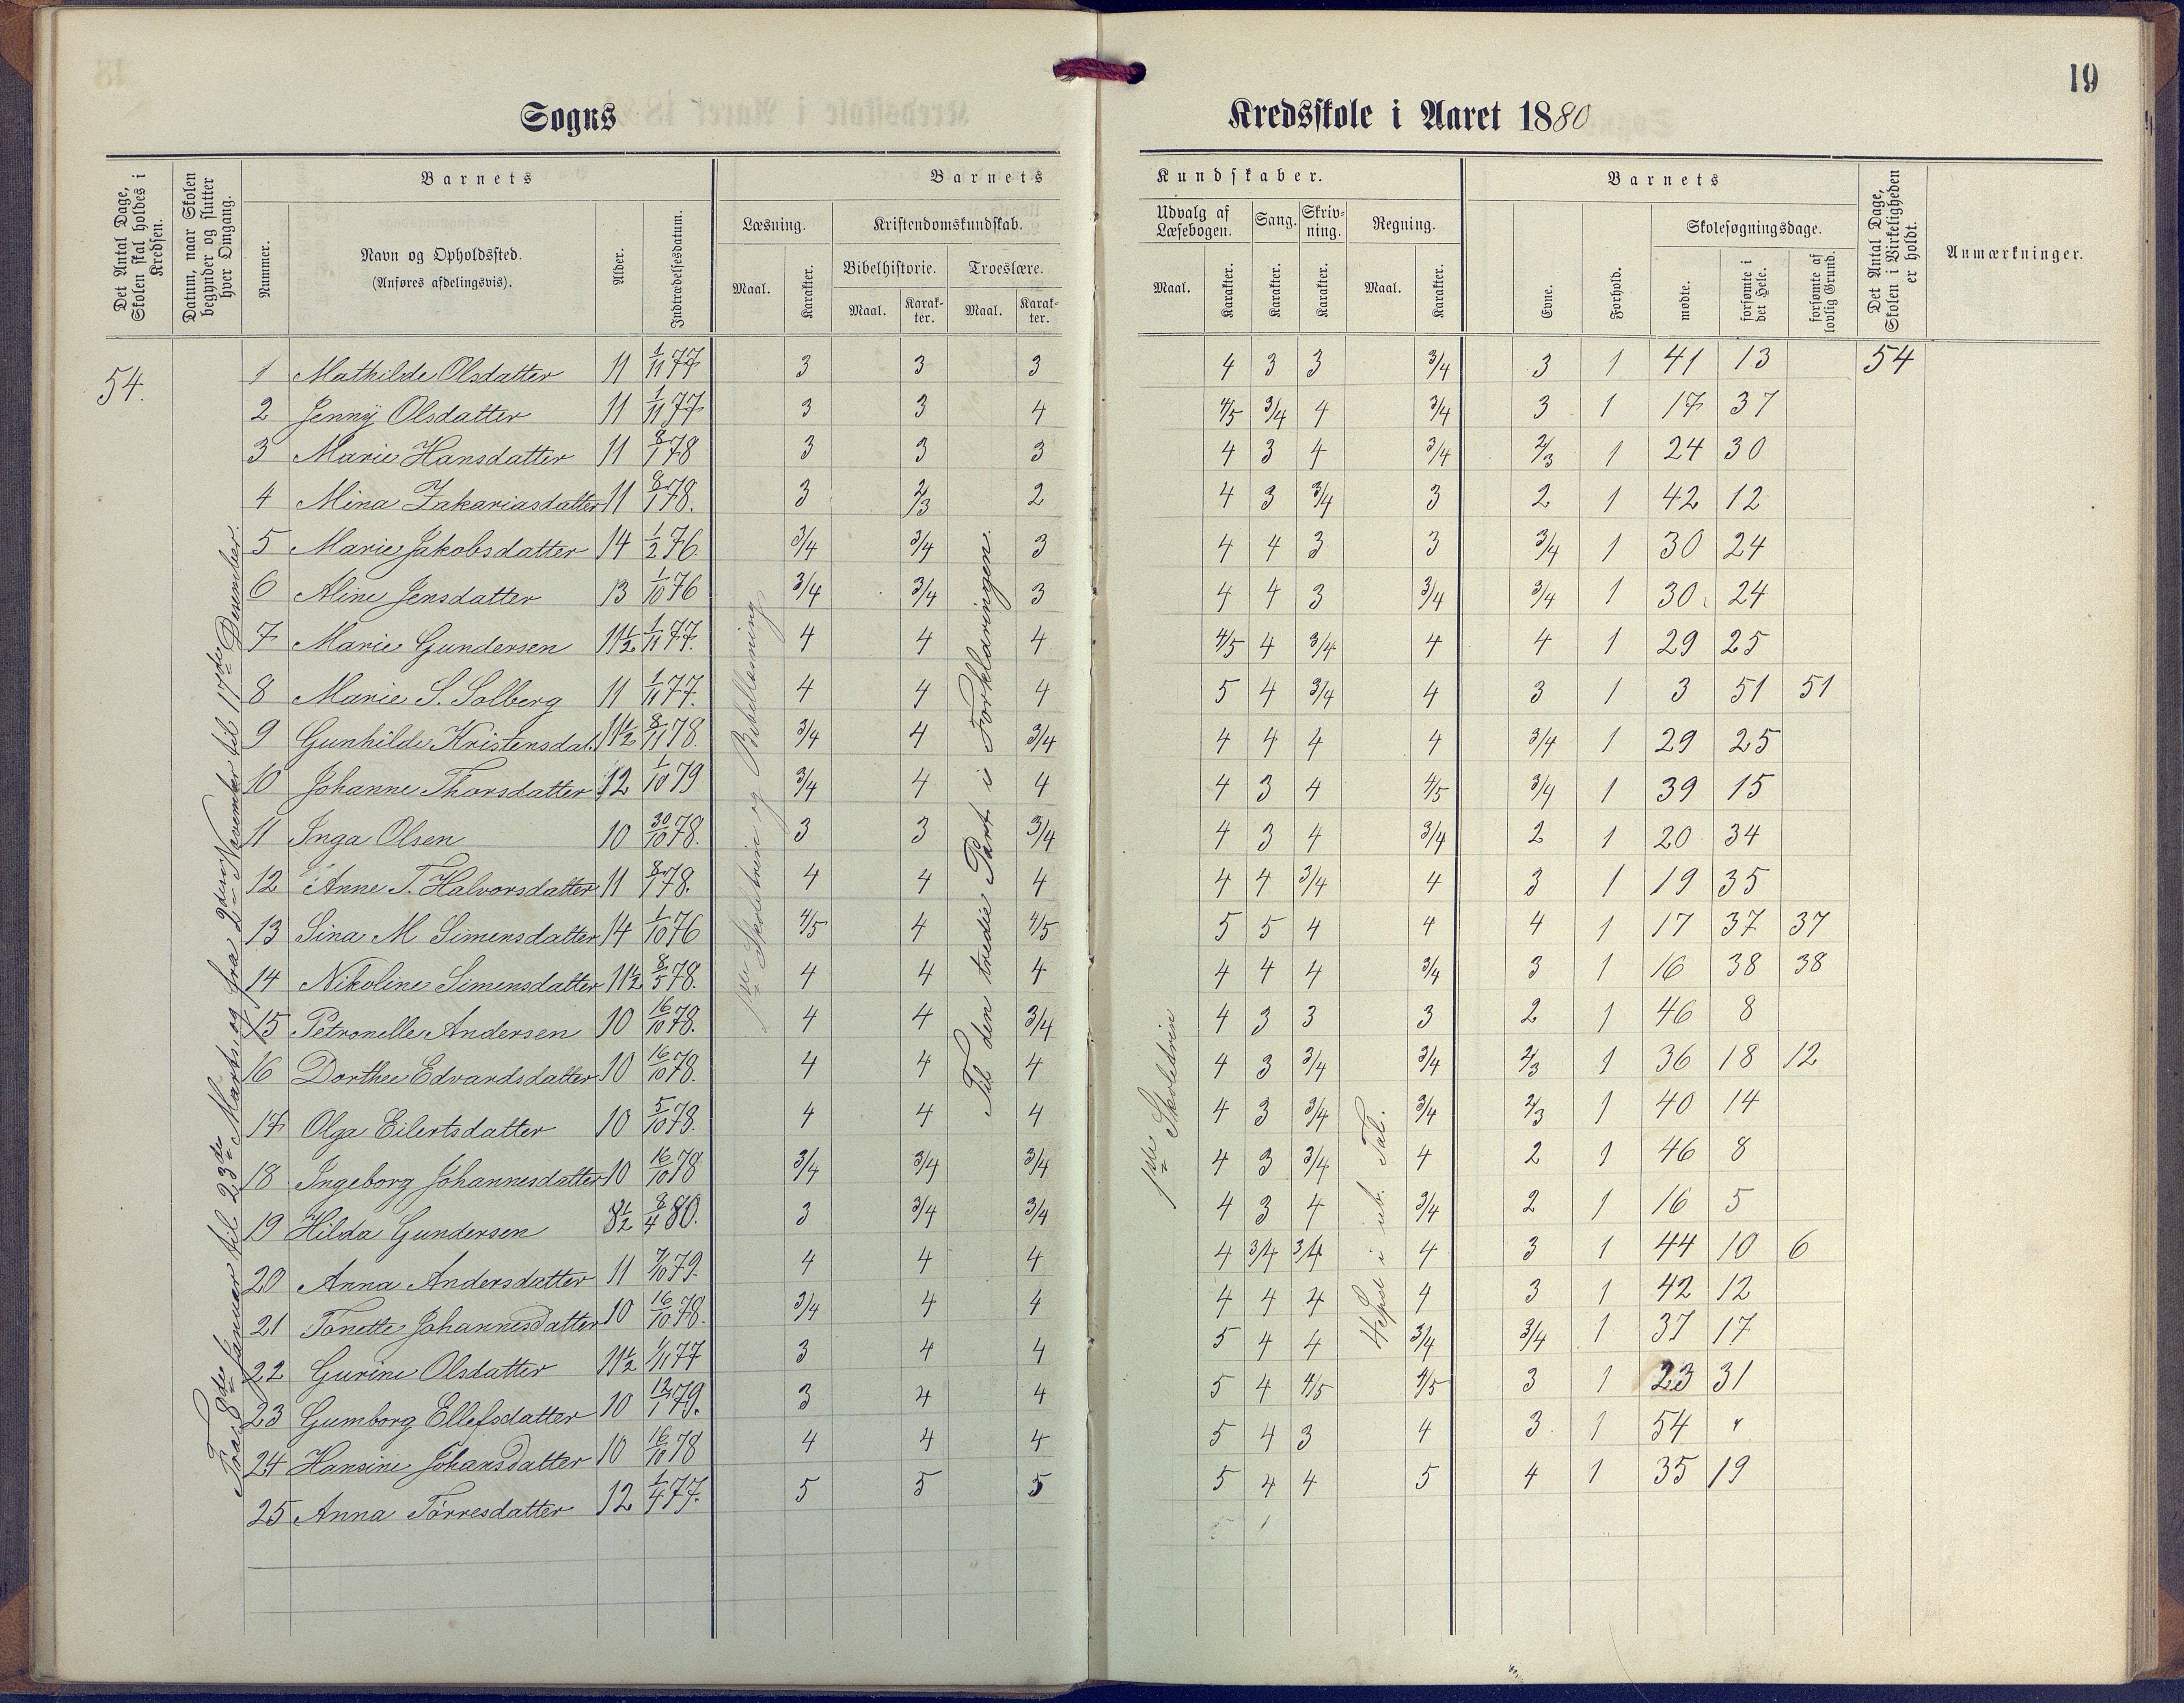 19
Sogns Kredsskole i Aaret 1880
Det Antal Dage, Skolen skal holdes i Kredsen.
Datum, naar Skolen begynder og slutter hver Omgang.
Barnets
Nummer.
Navn og Opholdssted.
(Anføres afdelingsvis).
Alder.
Indtrædelsesdatum.
Barnets Kundskaber.
Læsning.
Maal.
Karakter.
Kristendomskundskab.
Bibelhistorie.
Maal.
Karakter.
Troeslære.
Maal.
Karakter.
Udvalg af Læsebogen.
Maal.
Karakter.
Sang.
Karakter.
Skrivning.
Karakter.
Regning.
Maal.
Karakter.
Barnets
Evne.
Forhold.
Skolesøgningsdage.
mødte.
forsømte i det Hele.
forsømte af lovlig Grund.
Det Antal Dage, Skolen i Virkeligheden er holdt.
Anmærkninger.
54.
Fra 8de Januar til 23de Marts og fra 2den November til 17de Desember.
Til den tredie Part i Forklaringen.
1ste Skoletrin
4 Spec. i ub. Tal.
1 Mathilde Olsdatter 11 1/11 77 3 3 3 4 3 3 3/4 3 1 41 13 54
2 Jenny Olsdatter 11 1/11 77 3 3 4 4/5 3/4 4 3/4 3 1 17 37
3 Marie Hansdatter 11 8/1 78 3 3 3 4 3 4 3/4 2/3 1 24 30
4 Mina Zakariasdatter 11 8/1 78. 3 2/3 2 4 3 3/4 3 2 1 42 12
5 Marie Jakobsdatter 14 1/2 76. 3/4 3/4 3 4 4 3 3 3/4 1 30 24
6 Aline Jensdatter 13 1/10 76 3/4 3/4 3 4 4 3 3/4 3/4 1 30 24
7 Marie Gundersen 11 1/2 1/11 77. 4 4 4 4/5 4 3/4 4 4 1 29 25
8 Marie S. Solberg 11 1/11 77. 4 4 4 5 4 3/4 4 3 1 3 51 51
9 Gunhilde Kristensdat. 11 1/2 8/11 78. 3/4 4 3/4 4 4 4 4 3/4 1 29 25
10 Johanne Thorsdatter 12 1/10 79 3/4 4 4 4 3 4 4/5 3/4 1 39 15
11 Inga Olsen 10 30/10 78. 3 3 3/4 4 3 4 3/4 2 1 20 34
12 Anne T. Halvorsdatter 11 8/1 78. 4 4 4 4 4 3/4 4 3 1 19 35
13 Sina M Simensdatter 14 1/10 76 4/5 4 4/5 5 5 4 4 4 1 17 37 37
14 Nikoline Simensdatter 11 1/2 8/5 78. 4 4 4 4 4 4 3/4 3 1 16 38 38
15 Petronelle Andersen 10 16/10 78. 4 4 3/4 4 3 3 3 2 1 46 8
16 Dorthee Edvardsdatter 10 16/10 78. 4 4 4 4 3 3/4 3/4 2/3 1 36 18 12
17 Olga Eilertsdatter 10 5/10 78. 4 4 4 4 3 3/4 3/4 2/3 1 40 14
18 Ingeborg Johannesdatter 10 16/10 78 3/4 3/4 3/4 4 3 3/4 4 2 1 46 8
19 Hilda Gundersen 8 1/2 8/4 80. 3 3/4 3/4 4 3 4 3/4 2 1 16 5
20 Anna Andersdatter 11 7/10 79. 4 4 4 4 3/4 3/4 4 3 1 44 10 6
21 Tonette Johannesdatter 10 16/10 78. 3/4 4 4 4 4 4 4 3 1 42 12
22 Gurine Olsdatter 11 1/2 1/11 77 3 4 4 5 4 4 3/4 3/4 1 37 17
23 Gumborg Ellefsdatter 10 12/1 79. 3 4 4 5 4 4/5 4/5 3 1 23 31
24 Hansine Johansdatter 10 16/10 78 4 4 4 5 4 3 4 3 1 54 "
25 Anna Tørresdatter 12 1/4 77. 5 5 5 5 4 4 5 4 1 35 19